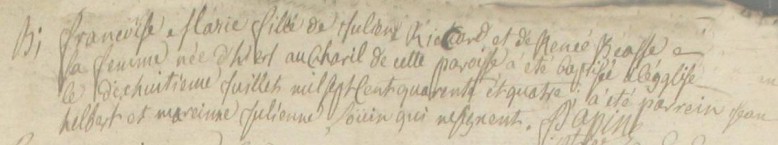 B; francoise Marie fille de Julien Richard et de Renée Beasse
sa femme née d'hier au Charil de cette paroisse a été baptisée a l'égglise
le dixhuitieme Juillet mil sept Cent quarente et quatre ; a été parrein Jean
helbert et mareinne Julienne qui ne signent.